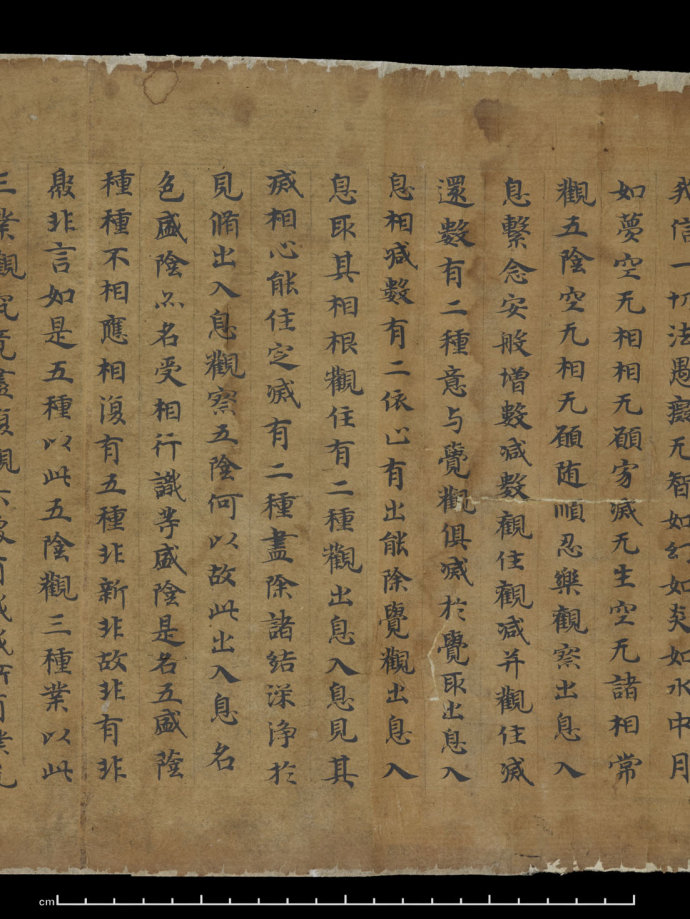 我信一切法愚癡无智如幻如炎如水中月
如夢空无相相无願寂滅无生空无諸相常
觀五陰空无相无願随順忍樂觀察出息入
息繫念安般增數減數觀住觀減并觀住減
還數有二種意与覺觀俱減於覺取出息入
息相減數有二依止有出能除覺觀出息入
息取其相根觀住有二種觀出息入息見其
減相心能住定滅有二種盡除諸結深浄於
見脩出入息觀察五陰何以故此出入息名
色盛陰亦名受相行識等盛陰是名五盛陰
種種不相應相復有五種非新非故非有非
非言如是五種以此五陰觀三種業以此
三業觀究竟盡復觀六
cm